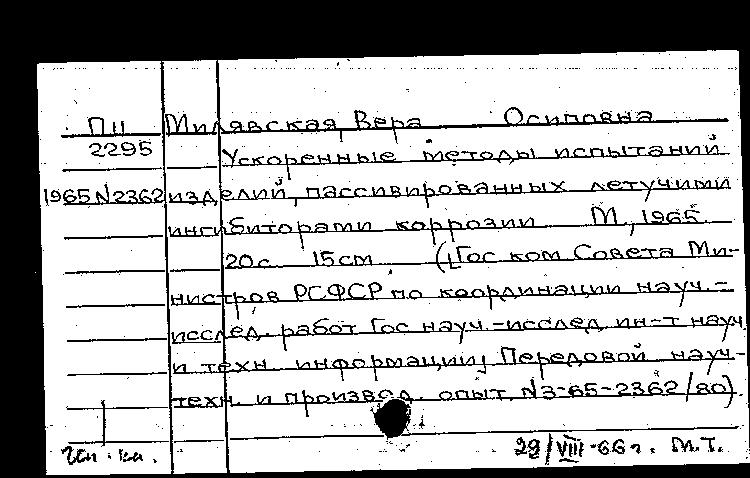 ПII Милявская, Вера Осиповна
2295 Ускоренные методы испытаний
1965 N2362 изделий, пассивированных летучими
ингибиторами коррозии М., 1965
20 с 15 см ([Гос ком Совета Ми-
нистров РСФСР по координации науч.-
исслед. работ Гос науч.-исслед. ин-т науч
и техн. информации] Передовой науч-
техн. и производ. опыт, N3-65-2362/80).
29/VIII-66 г. М.Т.